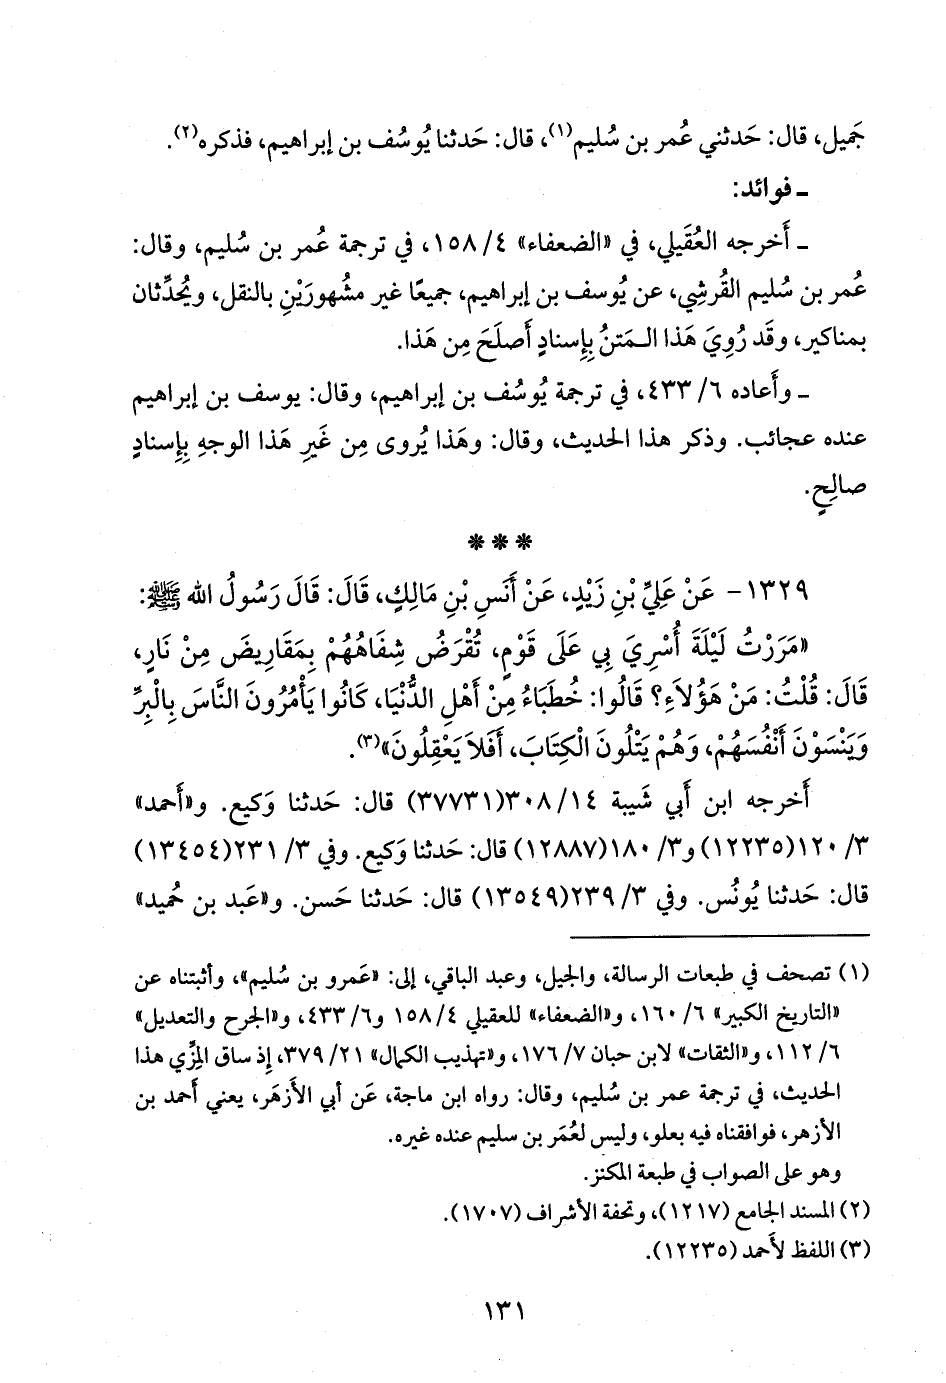 جَميل، قال: حَدثني عُمر بن سُليم(١)، قال: حَدثنا يُوسُف بن إبراهيم، فذكره(٢).
ـ فوائد:
ـ أَخرجه العُقَيلي، في «الضعفاء» ٤/ ١٥٨، في ترجمة عُمر بن سُليم، وقال:
عُمر بن سُليم القُرشِي، عن يُوسف بن إبراهيم، جميعًا غير مشهورَيْنِ بالنقل، ويُحدِّثان
بمناكير، وقَد رُوِيَ هَذا الـمَتنُ بِإِسنادٍ أَصلَحَ مِن هَذا.
ـ وأَعاده ٦/ ٤٣٣، في ترجمة يُوسُف بن إبراهيم، وقال: يوسف بن إبراهيم
عنده عجائب. وذكر هذا الحديث، وقال: وهَذا يُروى مِن غَيرِ هَذا الوجهِ بِإِسنادٍ
صالِحٍ.
* * *
١٣٢٩- عَنْ عَلِيِّ بْنِ زَيْدٍ، عَنْ أَنَسِ بْنِ مَالِكٍ، قَالَ: قَالَ رَسُولُ الله ﷺ:
«مَرَرْتُ لَيْلَةَ أُسْرِيَ بِي عَلَى قَوْمٍ، تُقْرَضُ شِفَاهُهُمْ بِمَقَارِيضَ مِنْ نَارٍ،
قَالَ: قُلْتُ: مَنْ هَؤُلاَءِ؟ قَالُوا: خُطَبَاءُ مِنْ أَهْلِ الدُّنْيَا، كَانُوا يَأْمُرُونَ النَّاسَ بِالْبِرِّ
وَيَنْسَوْنَ أَنْفُسَهُمْ، وَهُمْ يَتْلُونَ الْكِتَابَ، أَفَلاَ يَعْقِلُونَ»(٣).
أَخرجه ابن أَبي شَيبة ١٤/ ٣٠٨(٣٧٧٣١) قال: حَدثنا وَكيع. و«أَحمد»
٣/ ١٢٠(١٢٢٣٥) و٣/ ١٨٠(١٢٨٨٧) قال: حَدثنا وَكيع. وفي ٣/ ٢٣١(١٣٤٥٤)
قال: حَدثنا يُونُس. وفي ٣/ ٢٣٩(١٣٥٤٩) قال: حَدثنا حَسن. و«عَبد بن حُميد»
(١) تصحف في طبعات الرسالة، والجيل، وعبد الباقي، إلى: «عَمرو بن سُليم»، وأثبتناه عن
«التاريخ الكبير» ٦/ ١٦٠، و«الضعفاء» للعقيلي ٤/ ١٥٨ و٦/ ٤٣٣، و«الجرح والتعديل»
٦/ ١١٢، و«الثقات» لابن حبان ٧/ ١٧٦، و«تهذيب الكمال» ٢١/ ٣٧٩، إذ ساق المِزِّي هذا
الحديث، في ترجمة عمر بن سُليم، وقال: رواه ابن ماجة، عَن أبي الأَزهَر، يعني أَحمد بن
الأزهر، فوافقناه فيه بعلو، وليس لعُمَر بن سليم عنده غيره.
وهو على الصواب في طبعة المكنز.
(٢) المسند الجامع (١٢١٧)، وتحفة الأشراف (١٧٠٧).
(٣) اللفظ لأحمد (١٢٢٣٥).
١٣١